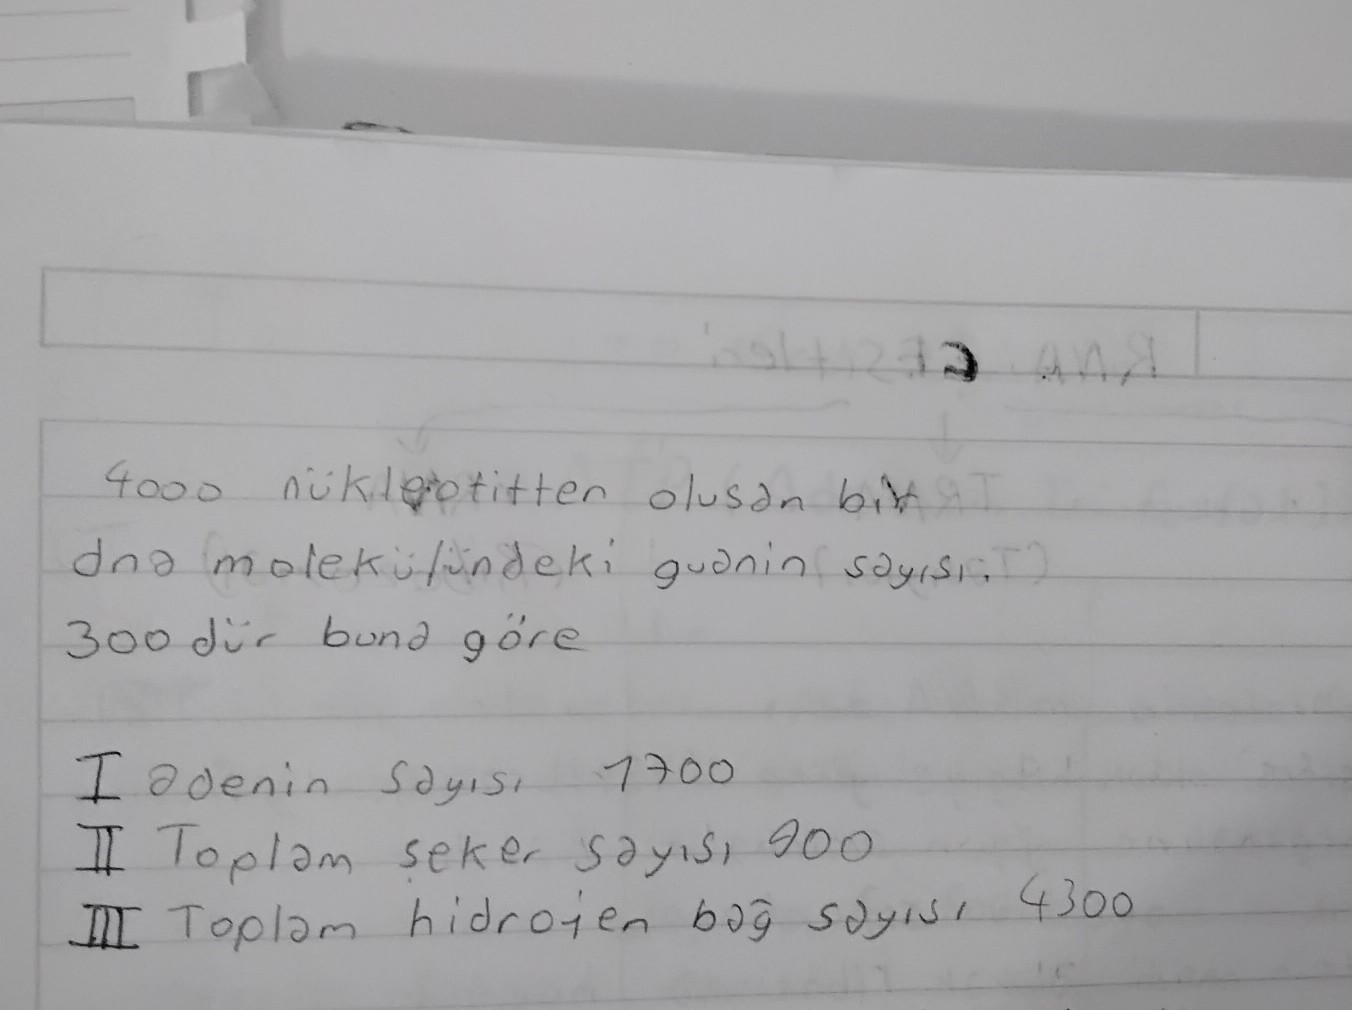 4000 nükleotitten olusan bir
dna molekülündeki guanin sayısı.
300 dür buna göre
I adenin sayısı 1700
II Toplam şeker sayısı 900
III Toplam hidrojen bağ sayısı 4300